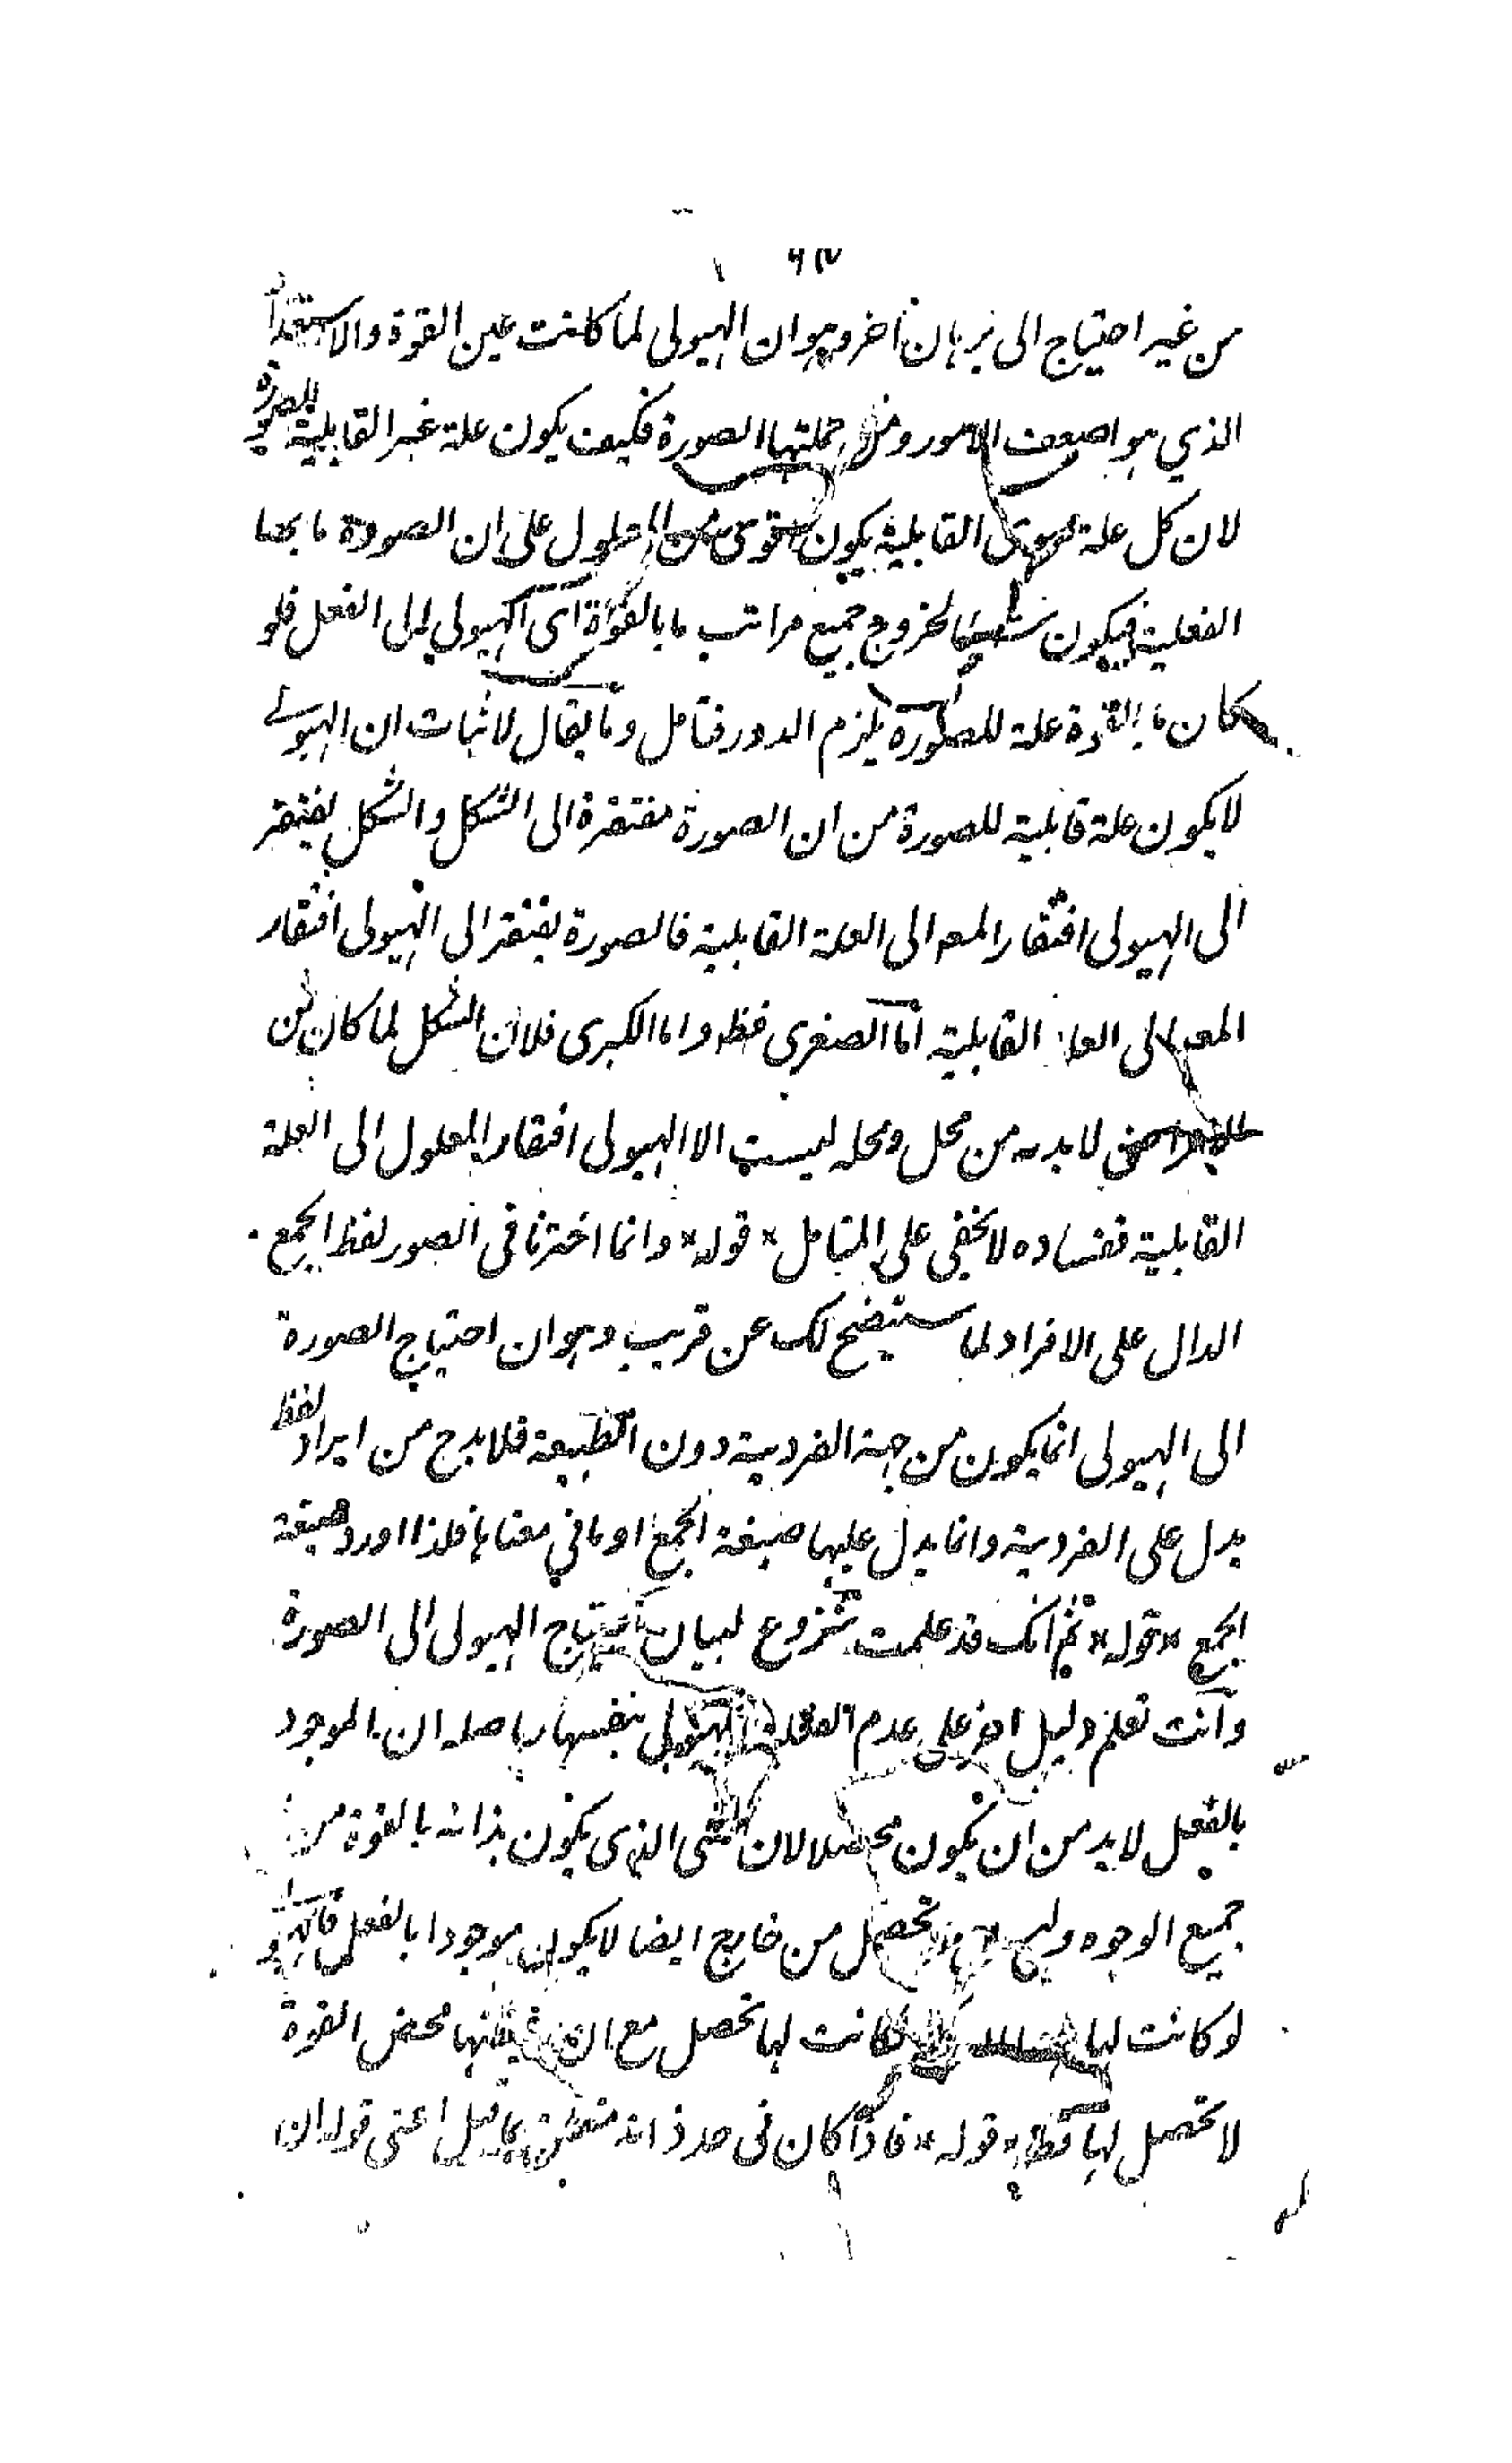 ٦٢
من غير احتياج الى برهان آخر وهو ان الهيولى لما كانت عين القوة والاستعداد
الذي هو اضعف الامور ومن جملتها الصورة فكيف يكون علة غير القابلية للصورة
لان كل علة سوى القابلية يكون اقوى من المعلول على ان الصورة ما بها
الفعلية فيكون سببا لخروج جميع مراتب ما بالقوة اى الهيولي الى الفعل فلو
كان ما بالقوة علة للصورة يلزم الدور فتامل وما يقال لاثبات ان الهيولے
لا يكون علة قابلية للصورة من ان الصورة مفتقرة الى الشكل والشكل يفتقر
الى الهيولى افتقار المعه الى العلة القابلية فالصورة يفتقر الى الهيولى افتقار
المعه الى العلة القابلية اما الصغرى فظ واما الكبرى فلان الشكل لما كان من
لا بد له من محل ومحله ليست الا الهيولى افتقار المعلول الى العلة
القابلية ففساده لا يخفى على المتامل * قوله * وانما اخترنا فى الصور لفظ الجمع
الدال على الافراد لما ستيضح لك عن قريب وهو ان احتياج الصورة
الى الهيولى انما يكون من جهة الفردية دون الطبيعة فلا بد ح من ايراد لفظ
يدل على الفردية وانما يدل عليها صيغة الجمع او ما في معناها فلذا اورد صيغة
الجمع * قوله * ثم انك قد علمت شروع لبيان احتياج الهيولى الى الصورة
وانت تعلم دليل اخر على عدم الهيولى بنفسها حاصله ان الموجود
بالفعل لا بد من ان يكون محصلا لان الشى الذى يكون بذاته بالقوة من
جميع الوجوه وليس له تحصل من خارج ايضا لا يكون موجودا بالفعل
لو كانت لها لكانت لها تحصل مع ان حقيقتها محض القوة
لا تحصل لها قط * قوله * فاذا كان فى حد ذاته متعلق بما قبل اعنى قوله ان